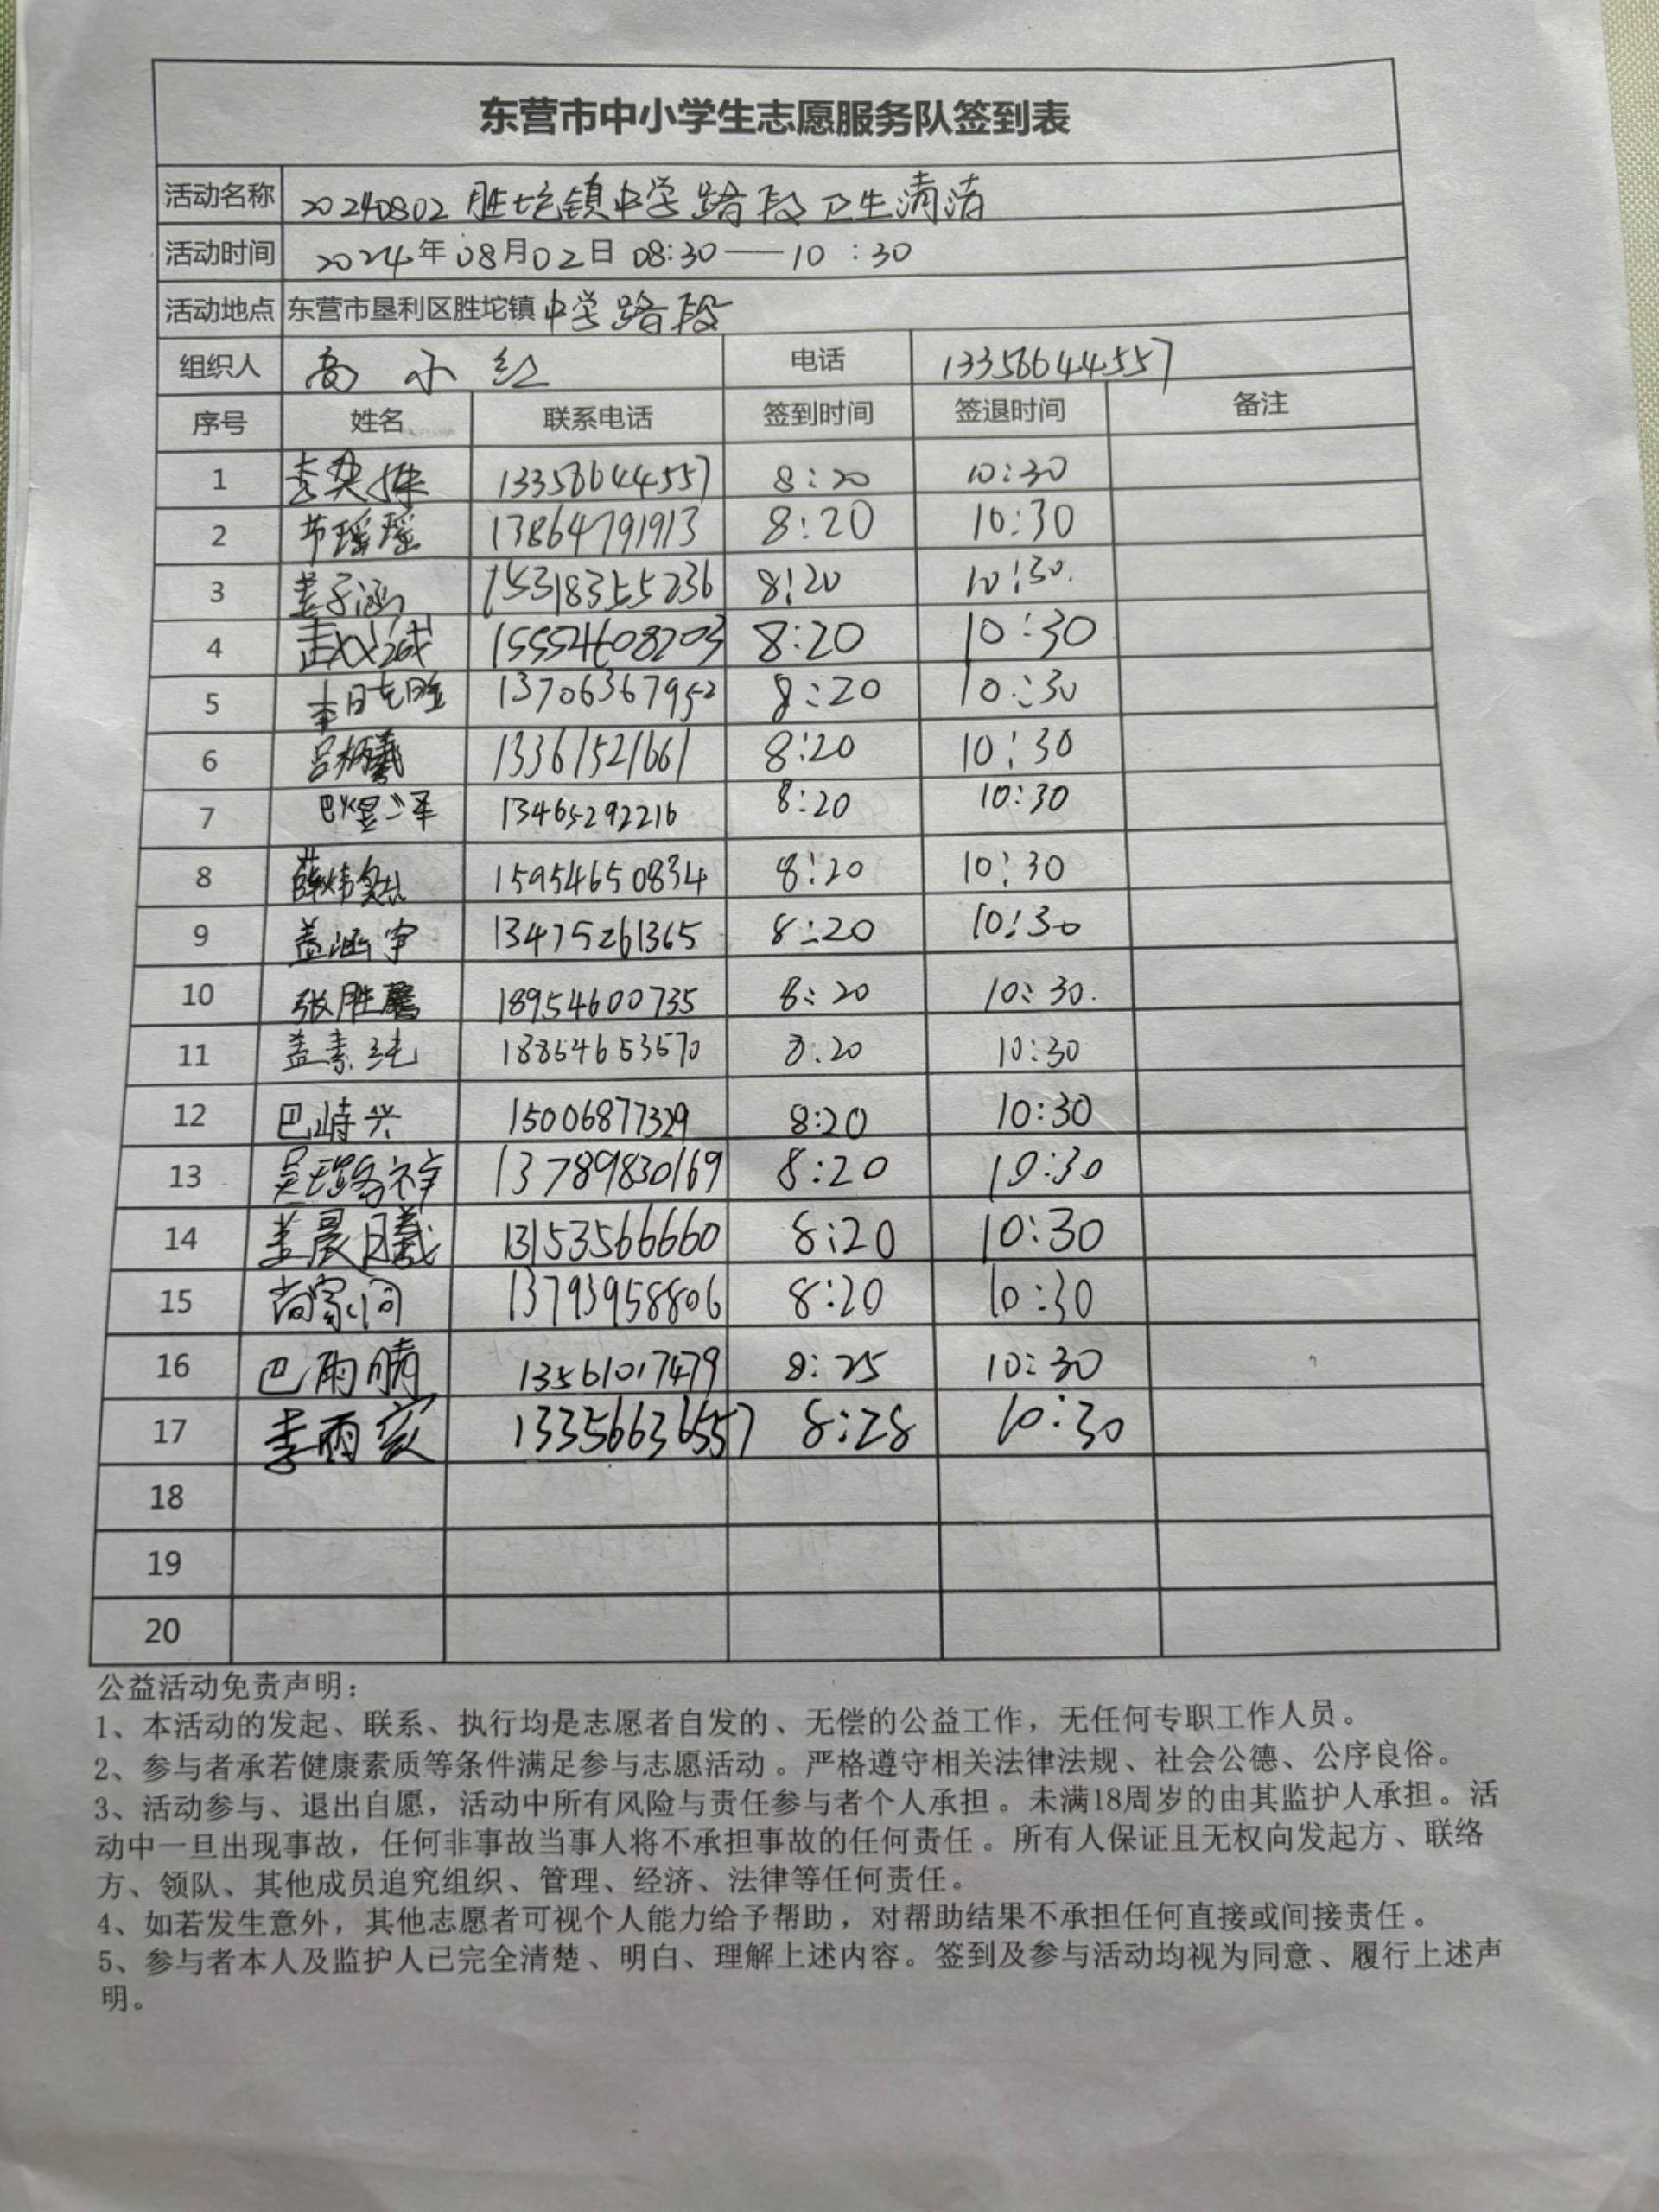 东营市中小学生志愿服务队签到表
活动名称 20240802胜坨镇中学路段卫生清洁
活动时间 2024年08月02日 08:30——10:30
活动地点 东营市垦利区胜坨镇中学路段
组织人 高小红 电话 13356644557
序号 姓名 联系电话 签到时间 签退时间 备注
1 13356644557 8:20 10:30
2 瑶瑶 13864791913 8:20 10:30
3 盖子涵 15318355236 8:20 10:30.
4 15554608203 8:20 10:30
5 13706367952 8:20 10:30
6 吕炳羲 13361521661 8:20 10:30
7 巴煜泽 13465292216 8:20 10:30
8 薛 15954650834 8:20 10:30
9 盖涵宇 13475261365 8:20 10:30
10 张胜馨 18954600735 8:20 10:30.
11 盖素纯 18864653670 8:20 10:30
12 巴峙兴 15006877329 8:20 10:30
13 吴 13789830169 8:20 10:30
14 盖晨曦 13153566660 8:20 10:30
15 尚家问 13793958806 8:20 10:30
16 巴雨晴 13561017479 8:25 10:30
17 李雨 13356636557 8:28 10:30
18
19
20
公益活动免责声明：
1、本活动的发起、联系、执行均是志愿者自发的、无偿的公益工作，无任何专职工作人员。
2、参与者承若健康素质等条件满足参与志愿活动。严格遵守相关法律法规、社会公德、公序良俗。
3、活动参与、退出自愿，活动中所有风险与责任参与者个人承担。未满18周岁的由其监护人承担。活
动中一旦出现事故，任何非事故当事人将不承担事故的任何责任。所有人保证且无权向发起方、联络
方、领队、其他成员追究组织、管理、经济、法律等任何责任。
4、如若发生意外，其他志愿者可视个人能力给予帮助，对帮助结果不承担任何直接或间接责任。
5、参与者本人及监护人已完全清楚、明白、理解上述内容。签到及参与活动均视为同意、履行上述声
明。